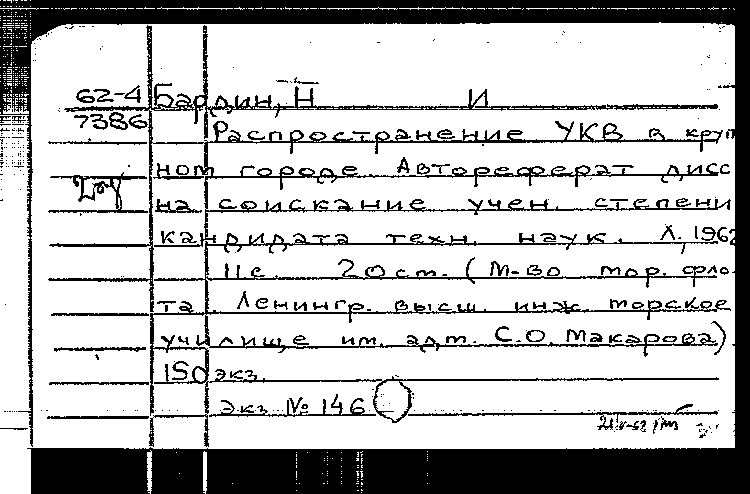 62-4
7386
Бардин, Н И
Распространение УКВ в круп
ном городе Автореферат дисс
на соискание учен. степени
кандидата техн. наук. Л, 1962
11 с 20 см. (М-во мор. фло-
та. Ленингр. высш. инж. морское
училище им. адм. С.О. Макарова)
150 экз.
экз № 146